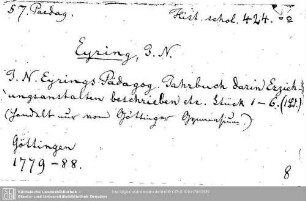 57. Paedag.
Hist. schol. 424.
Eyring, J. N.
J. N. Eyrings Pädagog. Jahrbuch darin Erzieh-
ungsanstalten beschrieben etc. Stück 1-6.
(handelt nur vom Göttinger Gymnasium.)
Göttingen
1779-88.
8
Sächsische Landesbibliothek -
Staats- und Universitätsbibliothek Dresden